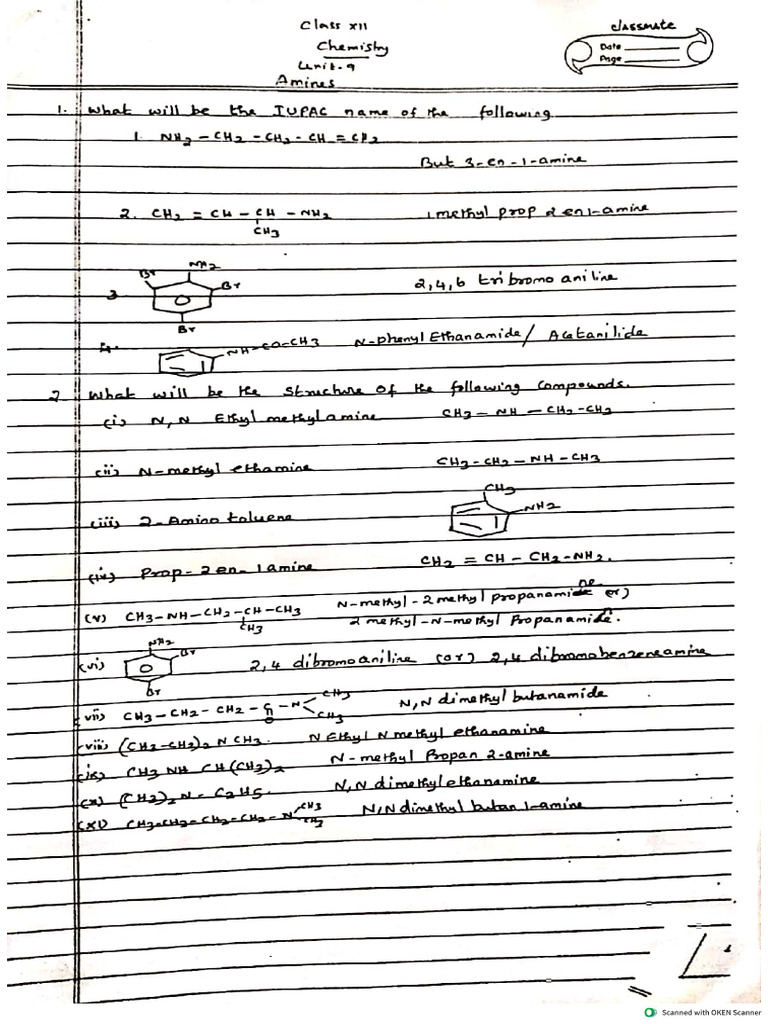 Class XII
classmate
Chemistry
Date
Page
Unit-9
Amines
1. What will be the IUPAC name of the following
1. NH2 – CH2 – CH2 - CH = CH2
But 3-en-1-amine
2. CH2 = CH – CH – NH2 1 methyl prop 2 en 1-amine
CH3
NH2
Br Br 2,4,6 tribromo aniline
3
Br
4. NH-CO-CH3 N-phenyl Ethanamide / Acetanilide
2 What will be the structure of the following compounds.
(i) N, N Ethyl methylamine CH3 – NH – CH2 -CH3
(ii) N-methyl ethamine CH3 - CH2 – NH – CH3
CH3
(iii) 2-Amino toluene NH2
(iv) Prop-2 en-1 amine CH2 = CH – CH2-NH2.
(v) CH3-NH-CH2-CH-CH3 N-methyl-2 methyl propanamine (or)
CH3 2 methyl-N-methyl Propanamine.
NH2
Br
(vi) 2,4 dibromoaniline (or) 2,4 dibromobenzeneamine
Br
(vii) CH3 – CH2 – CH2 – C – N CH3 N,N dimethyl butanamide
O CH3
(viii) (CH3-CH2)2 N CH3. N Ethyl N methyl ethanamine
(ix) CH3 NH CH(CH3)2 N-methyl Propan 2-amine
(x) (CH3)2 N - C2H5. N,N dimethylethanamine
(xi) CH3-CH2-CH2-CH2-N CH3 N,N dimethyl butan 1-amine
CH3
Scanned with OKEN Scanner